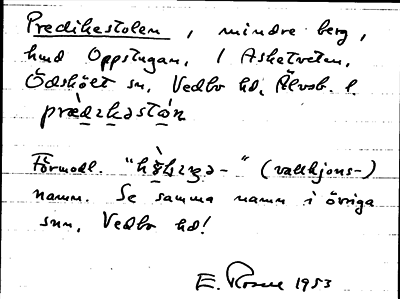 Predikestolen, mindre berg,
hmd Oppstugan, / Asketveten,
Ödskölt sn, Vedbo hd, Älvsb. l.
prædıkəstón
Förmodl. "hə̀lıgə-" (vallhjons-)
namn. Se samma namn i övriga
snn, Vedbo hd!
E. Rosell 1953